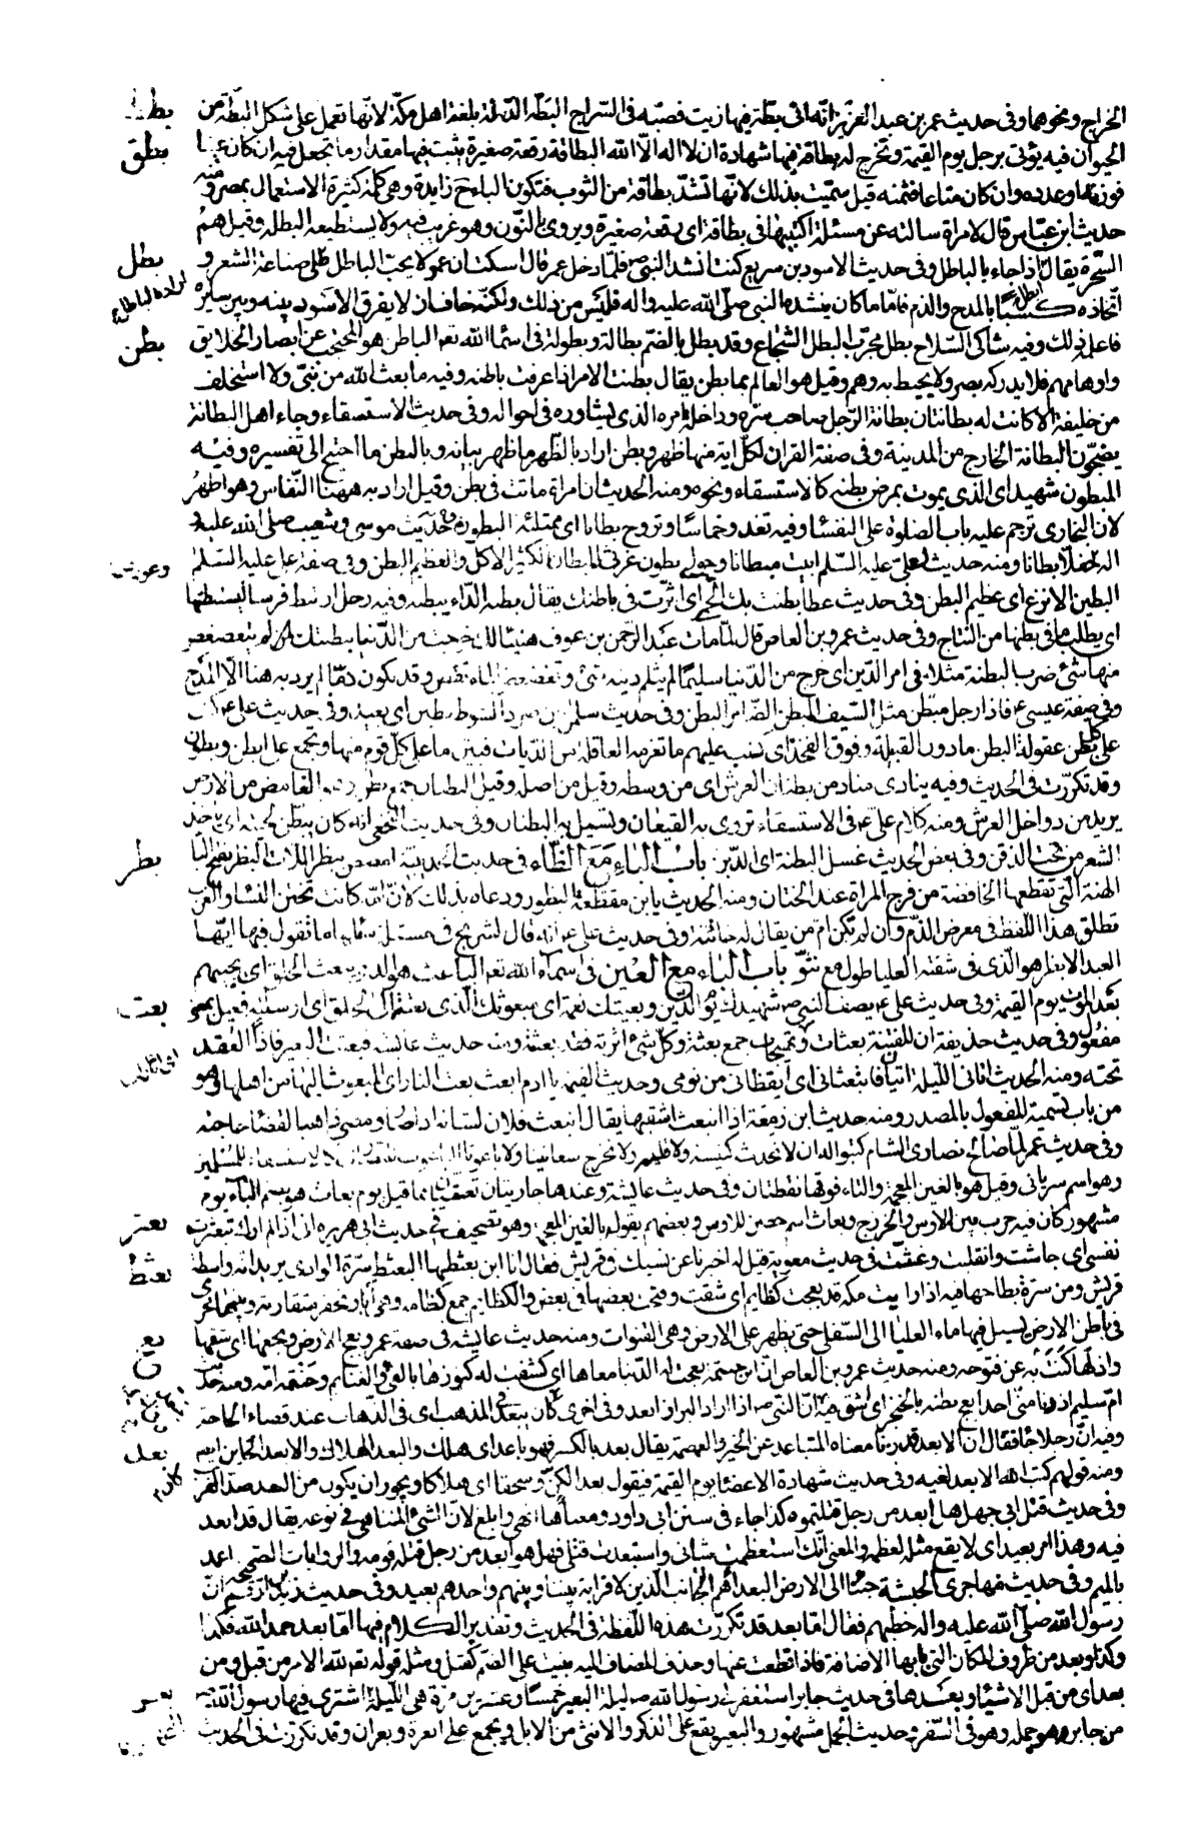 الخراج ونحوهما وفى حديث عمر بن عبد العزيز انّه اتى بطّة فيها زيت فصبّه فى السّراج البَطّة الدّبّة بلغة اهل مكّة لانّها تعمل على شكل البطّة من
الحيوان فيه يؤتى برجل يوم القيمة وتخرج له بطاقة فيها شهادة ان لا اله الّا الله البطاقة رقعة صغيرة يثبت فيها مقدار ما تجعل فيه ان كان عينا
بطق
فوزنه او عدده وان كان متاعا فثمنه قيل سمّيت بذلك لانّها تشدّ بطاقة من الثوب فتكون الباء ح زايدة وهى كلمة كثيرة الاستعمال بمصر ومنه
حديث ابن عبّاس قال لامراة سالته عن مسئلة اكتبيها فى بطاقة اى رقعة صغيرة ويروى بالنّون وهو غريب فيه ولا يستطيعه البطلة وقيل هم
السّحرة يقال ابطل اذا جاء بالباطل وفى حديث الاسود بن سريع كنت انشد النبى ص فلمّا دخل عمر قال اسكت ان عمر لا يحبّ الباطل اراد بالباطل صناعة الشعر و
بطل
اتّخاذه كسبًا بالمدح والذم فامّا ما كان ينشده النبى صلّى الله عليه واله فليس من ذلك ولكنّه خاف ان لا يفرق الاسود بينه وبين سايره
فاعلمه ذلك وفيه شاكى السّلاح بطل مجرّب البطل الشّجاع وقد بطل بالضّم بطالة وبطولة فى اسماء الله تعم الباطن هو المحتجب عن ابصار الخلايق
بطن
واوهامهم فلا يدركه بصر ولا يحيط به وهم وقيل هو العالم بما بطن يقال بطنت الامر اذا عرفت باطنه وفيه ما بعث الله من نبىّ ولا استخلف
من خليفة الا كانت له بطانتان بطانة الرّجل صاحب سرّه وداخلة امره الذى يشاوره فى احواله وفى حديث الاستسقاء وجاء اهل البطانة
يضجّون البطانة الخارج من المدينة وفى صفة القران لكلّ اية منها ظهر وبطن اراد بالظّهر ما ظهر بيانه وبالبطن ما احتيج الى تفسيره وفيه
المبطون شهيد اى الذى يموت بمرض بطنه كالاستسقاء ونحوه ومنه الحديث ان امراة ماتت فى بطن وقيل اراد به ههنا النّفاس وهو اظهرُ
لان البخارى ترجم عليه باب الصلوة على النفساء وفيه تغدو خماصًا وتروح بطانا اى ممتلئة البطون وفى حديث موسى وشعيب صلى الله عليه و
اله حفّلا بطانا ومنه حديث لعلىّ عليه السّلم ابيت مبطانا وحولى بطون غرثى المبطان الكثير الاكل والعظيم البطن وفى صفة على عليه السّلم
البطين الانزع اى عظيم البطن وفى حديث عطا بطنت بك الحمّى اى اثّرت فى باطنك يقال بطنه الدّاء يبطنه وفيه رجل ارتبط فرسا ليستبطنها
اى يطلب ما فى بطنها من النّتاج وفى حديث عمرو بن العاص قال لمّا مات عبد الرّحمن بن عوف هنيئا لك خرجت من الدّنيا ببطنتك لم يتغضغض
منها شئ ضرب البطنة مثلا فى امر الدّين اى خرج من الدّنيا سليمًا لم يثلم دينه شئ وتغضغض الماء نقص وقد يكون ذمّا لم يرد به هنا الّا المدح
وفى صفة عيسى ع فاذا رجل مبطّن مثل السّيف المبطن الضّامر البطن وفى حديث سليمن بن صرد الشوط بطين اى بعيد وفى حديث على ع كتب
على كل بطن عقولة البطن ما دون القبيلة وفوق الفخذ اى كتب عليهم ما تغرمه العاقلة من الدّيات فبيّن ما على كلّ قوم منها وتجمع على ابطن وبطون
وقد تكرّرت فى الحديث وفيه ينادى مناد من بطنان العرش اى من وسطه وقيل من اصله وقيل البطنان جمع بطن وهو الغامض من الارض
يريد من دواخل العرش ومنه كلام على ع فى الاستسقاء تروى به القيعان وتسيل به البطنان وفى حديث النّخعى انه كان يبطن لحيته اى ياخذ
الشعر من تحت الذقن وفى بعض الحديث غسل البطنة اى الدّبر باب الباء مع الظّاء فى حديث الحديبية امصص ببظر اللات البظر بفتح البا
بظر
الهنة الّتى تقطعها الخافضة من فرج المراة عند الختان ومنه الحديث يابن مقطّعة البظور ودعاه بذلك لانّ امّه كانت تختن النساء والعرب
تطلق هذا اللفظ فى معرض الذّم وان لم تكن ام من يقال له خاتنة وفى حديث على ع انه قال لشريح فى مسئلة سئلها ما تقول فيها ايّها
العبد الابظر هو الّذى فى شفته العليا طول مع نتوّ باب الباء مع العين فى اسماء الله تعم الباعث هو الذى يبعث الخلق اى يحييهم
بعد الموت يوم القيمة وفى حديث على ع يصف النبى ص شهيدك يوم الدّين وبعيثك نعمة اى مبعوثك الّذى بعثته الى الخلق اى ارسلته فعيل بمعنى
بعث
مفعول وفى حديث حذيفة ان للفتنة بعثات وتهيجات جمع بعثة وكلّ شئ اثرته فقد بعثته ومنه حديث عائشة فبعثت البعير فاذا العقد
تحته ومنه الحديث اتانى الليلة اتيان فابتعثانى اى ايقظانى من نومى وحديث القيمة يا ادم ابعث بعث النار اى المبعوث اليها من اهلها وهو
من باب تسمية المفعول بالمصدر ومنه حديث ابن زمعة اذا انبعث اشقيها يقال انبعث فلان لشانه اذا ثار ومضى ذاهبا لقضاء حاجته
وفى حديث عمر لمّا صالح نصارى الشام كتبوا له ان لا نحدث كنيسة ولا قلية ولا نخرج سعانينا ولا باعوثا الباعوث للنصارى كالاستسقاء للمسلمين
وهو اسم سريانى وقيل هو بالغين المعجمة والتاء فوقها نقطتان وفى حديث عايشة وعندها جاريتان تغنّيان بما قيل يوم بعاث هو بضم الباء يوم
مشهور كان فيه حرب بين الاوس والخزرج وبعاث اسم حصن للاوس وبعضهم يقوله بالغين المعجمة وهو تصحيف فى حديث ابى هريرة انى اذا لم ارك تبعثرت
بعثر
نفسى اى جاشت وانقلبت وغثت فى حديث معوية قيل له اخبرنا عن نسبك فى قريش فقال انا ابن بعثطها البعثط سرّة الوادى يريد انه واسطة
بعثط
قريش ومن سرة بطاحها فيه اذا رايت مكة قد بعجت كظايم اى شقت وفتحت بعضها فى بعض والكظايم جمع كظامه وهى ابار تحفر متقاربة وبينها مجرى
فى باطن الارض يسيل فيها ماء العليا الى السّفلى حتى يظهر على الارض وهى القنوات ومنه حديث عايشة فى صفة عمر وبعج الارض وبخعها اى شقّها
بعج
واذلّها كَنَتْ به عن فتوحه ومنه حديث عمرو بن العاص انّ ابن حنتمة بعجت له الدّنيا معاها اى كشفت له كنوزها بالفئ والغنايم وحَنْتَمة امّه ومنه حديث
امّ سليم ان دنا منّى احد ابعج بطنه بالخنجر اى اشقّ فيه انّ النبّى ص اذا اراد البراز ابعد وفى اخرى كان يبعد فى المذهب اى فى الذّهاب عند قضاء الحاجة
وفيه انّ رجلا جاء فقال ان الابعد قد زنا معناه المتباعد عن الخير والعصمة يقال بعد بالكسر فهو باعد اى هلك والبعد الهلاك والابعد الخاين ايضا
بعد
ومنه قولهم كبّ الله الابعد لفيه وفى حديث شهادة الاعضاء يوم القيمة فيقول بعدا لكنّ وسحقا اى هلاكا ويجوز ان يكون من البعد ضدّ القرب
وفى حديث قتل ابى جهل هل ابعد من رجل قتلتموه كذا جاء فى سنن ابى داود ومعناها انهى وابلغ لانّ الشئ المتناهى فى نوعه يقال قد ابعد
فيه وهذا امر بعيد اى لا يقع مثله لعظمه والمعنى انّك استعظمت شانى واستبعدت قتلى فهل هو ابعد من رجل قتله قومه والروايات الصّحيحة اعمد
بالميم وفى حديث مهاجرى الحبشة جئنا الى الارض البعداء هم الاجانب الّذين لا قرابة بيننا وبينهم واحدهم بعيد وفى حديث زيد بن ارقم انّ
رسول الله صلّى الله عليه واله خطبهم فقال امّا بعد قد تكرّرت هذه اللّفظة فى الحديث وتقدير الكلام فيها امّا بعد حمد الله فكذا
وكذا وبعد من ظروف المكان التى بابها الاضافة فاذا قطعت عنها وحذف المضاف اليه بنيت على الضّم كقبل ومثله قوله تعم لله الامر من قبل ومن
بعد اى من قبل الاشياء وبعدها فى حديث جابر استغفر لى رسول الله ص ليلة البعير خمسًا وعشرين مرّة هى اللّيلة الّتى اشترى فيها رسول الله ص
بعر
من جابر جمله وهو فى السّفر وحديث الجمل مشهور والبعير يقع على الذّكر والانثى من الابل ويجمع على ابعرة وبعران وقد تكرّرت فى الحديث